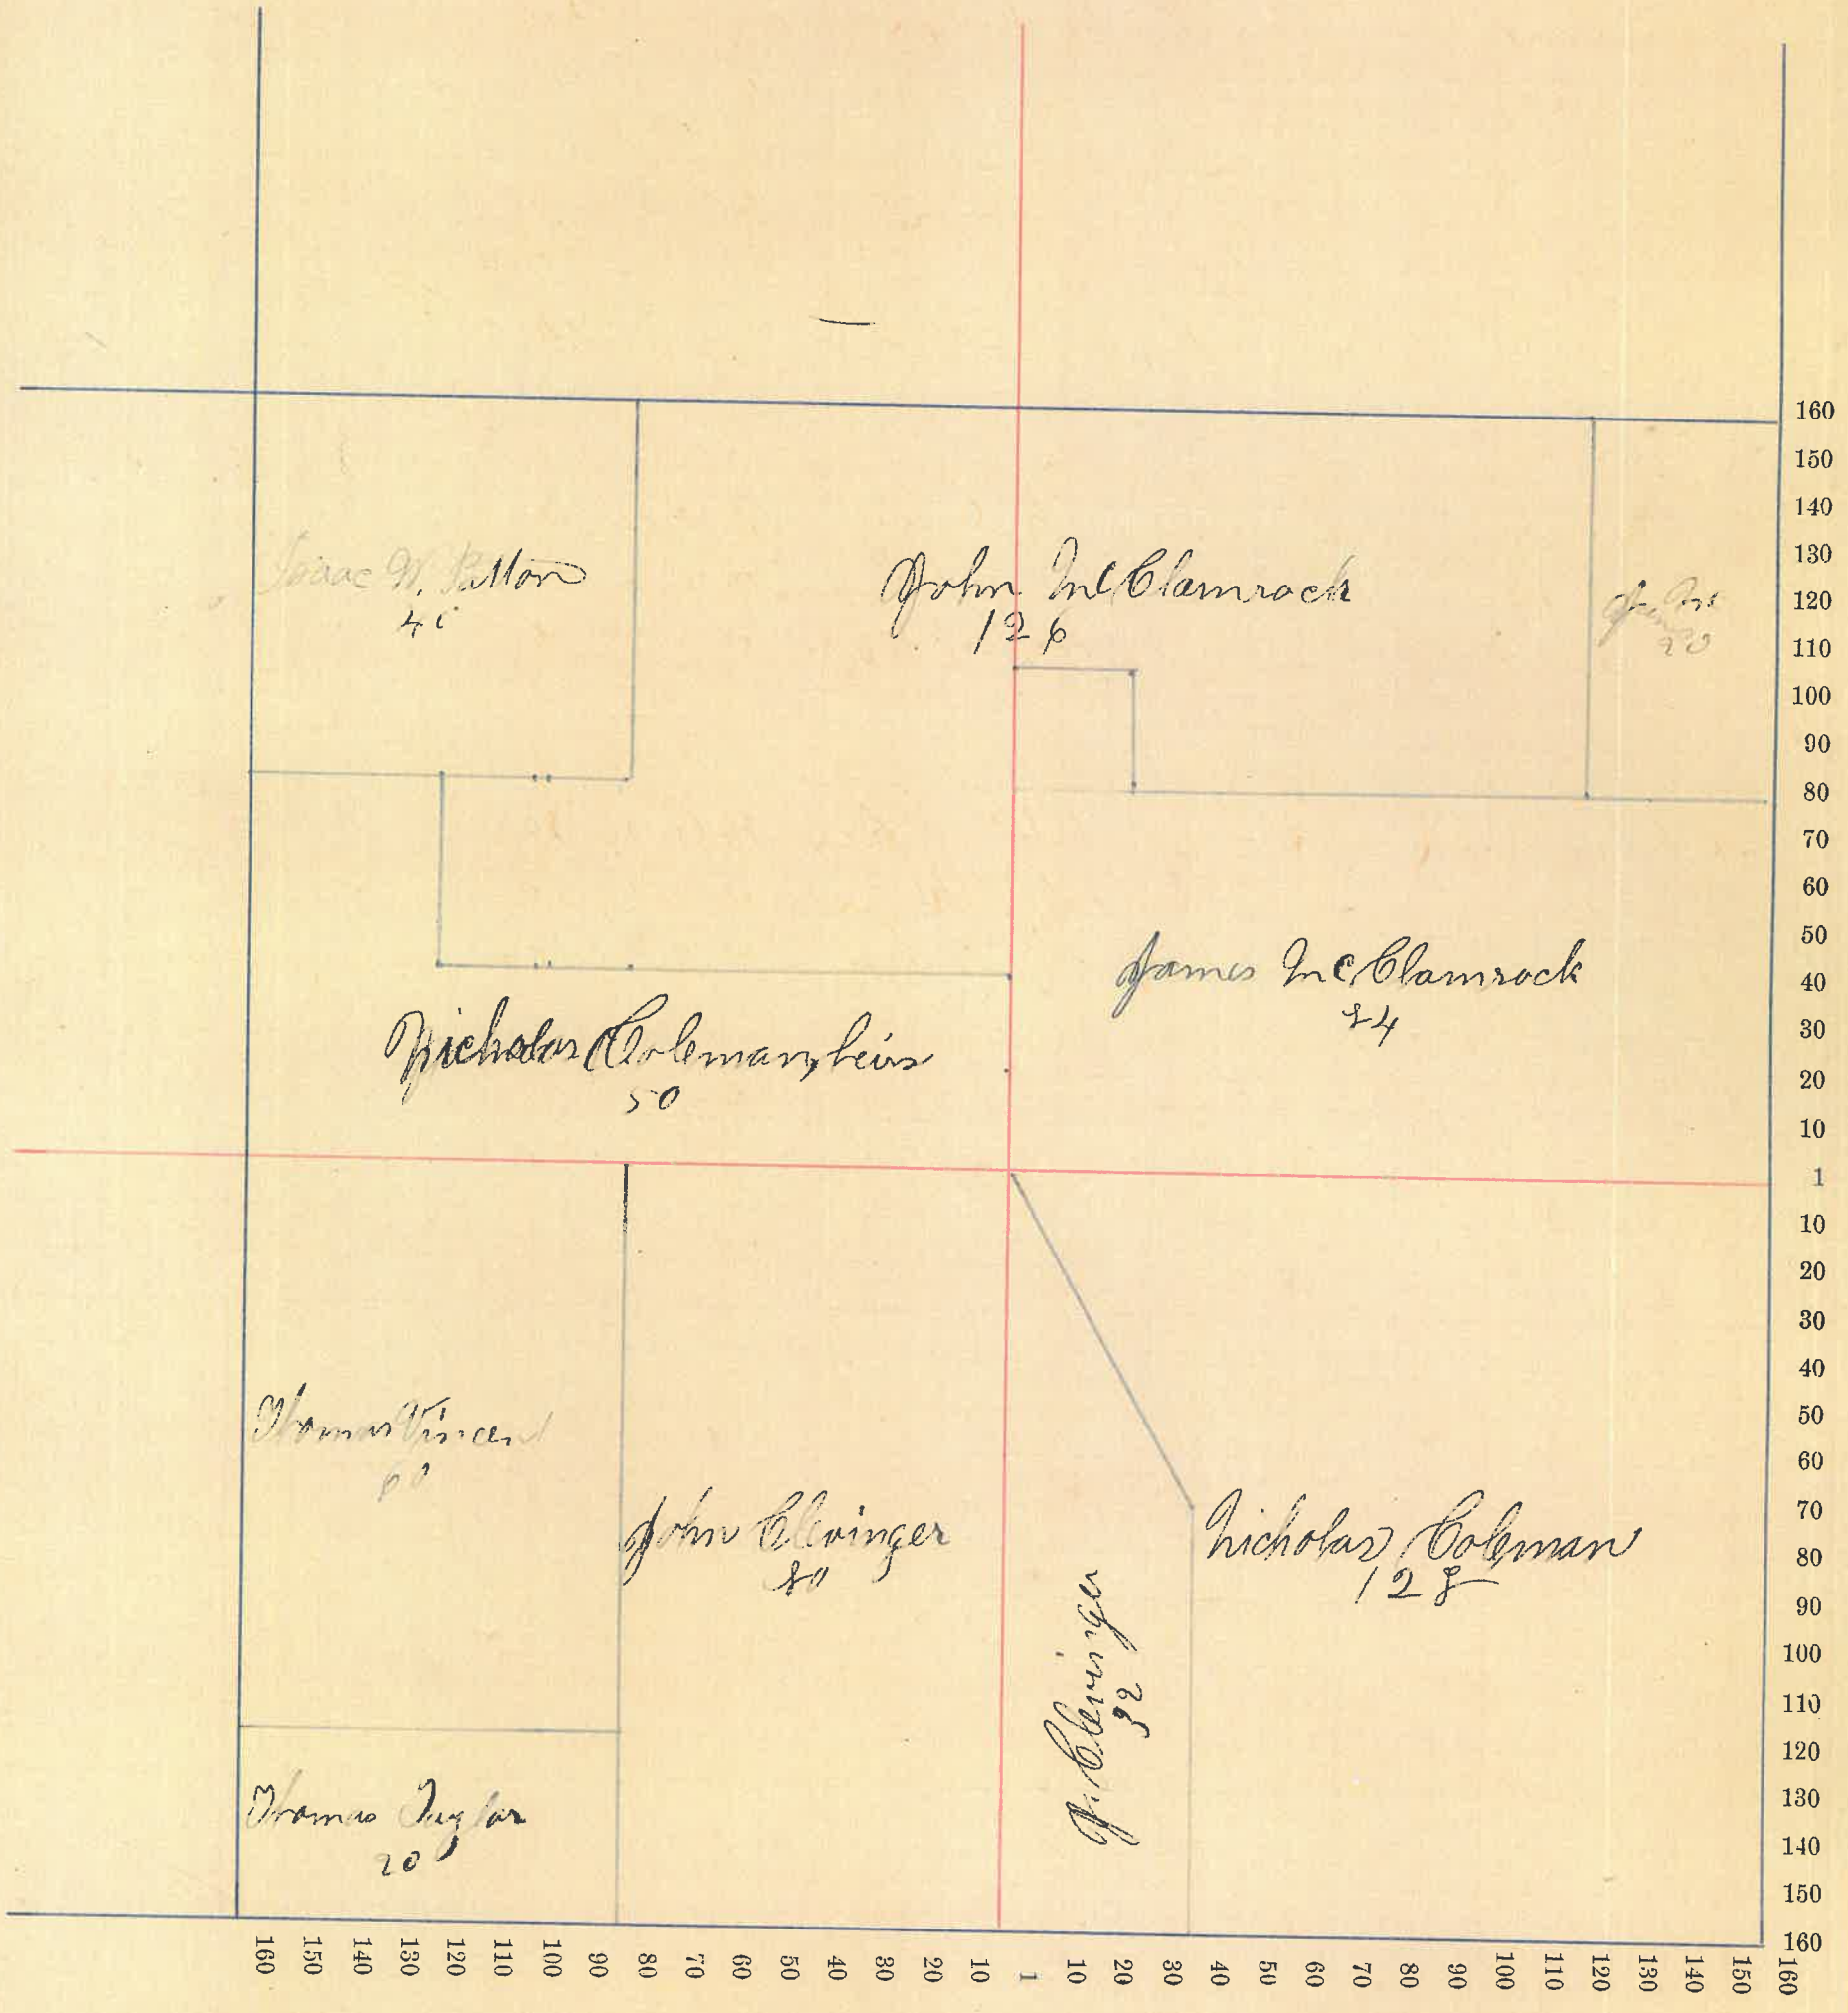 Isaac W. Patton
40
John McClamrock
126
20
James McClamrock
84
Nicholas Coleman, heirs
50
Thomas Vincen
60
John Clevinger
80
Clevinger
32
Nicholas Coleman
128
Thomas Taylor
20
160
150
140
130
120
110
100
90
80
70
60
50
40
30
20
10
1
10
20
30
40
50
60
70
80
90
100
110
120
130
140
150
160
160 150 140 130 120 110 100 90 80 70 60 50 40 30 20 10 1 10 20 30 40 50 60 70 80 90 100 110 120 130 140 150 160